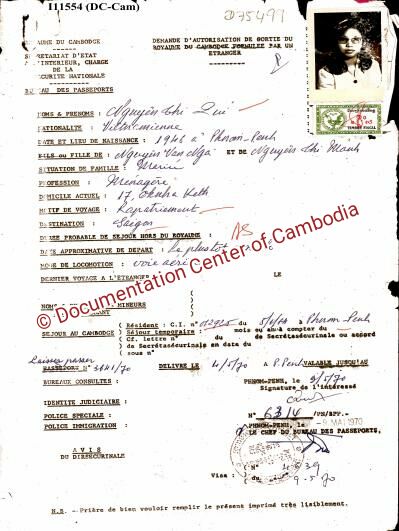 I11554 (DC-Cam)
D75499
ROYAUME DU CAMBODGE
SECRETARIAT D'ETAT
A L'INTERIEUR, CHARGE
DE LA
SECURITE NATIONALE
BUREAU DES PASSEPORTS
DEMANDE D'AUTORISATION DE SORTIE DU
ROYAUME DU CAMBODGE FORMULEE PAR UN
ETRANGER
TIMBRE FISCAL
NOMS & PRENOMS : Nguyên thi Qui
NATIONALITE : Vietnamienne
DATE ET LIEU DE NAISSANCE : 1946 à Phnom-Penh
FILS ou FILLE DE : Nguyên Van Nga et DE Nguyên thi Manh
SITUATION DE FAMILLE :
PROFESSION : Ménagère
DOMICILE ACTUEL : 17,
MOTIF DE VOYAGE : Rapatriement
DESTINATION : Saigon
DUREE PROBABLE DE SEJOUR HORS DU ROYAUME : AS
DATE APPROXIMATIVE DE DEPART : le plus tôt
MODE DE LOCOMOTION : voie
DERNIER VOYAGE A L'ETRANGER LE
MINEURS
SEJOUR AU CAMBODGE
Résident : C.I. n° du à Phnom-Penh
Séjour temporaire : mois ou an à compter du
Cf. lettre n° du de Secrétasécurinale ou accord
de Secrétasécurinale en date du
sous n°
Laissez passer
PASSEPORT N° 3641/70 DELIVRE LE 4/5/70 à P.Penh VALABLE JUSQU'AU
BUREAUX CONSULTES :
PHNOM-PENH, le 9/5/70
Signature de l'intéressé
IDENTITE JUDICIAIRE :
POLICE SPECIALE :
POLICE IMMIGRATION :
N° 6314 /PN/BPP.-
PHNOM-PENH, le -9 MAI 1970
LE CHEF DU BUREAU DES PASSEPORTS,
AVIS
DU DIRSECURINALE
Visa :
(N°
(du 9.5.70
N.B. - Prière de bien vouloir remplir le présent imprimé très lisiblement.
© Documentation Center of Cambodia